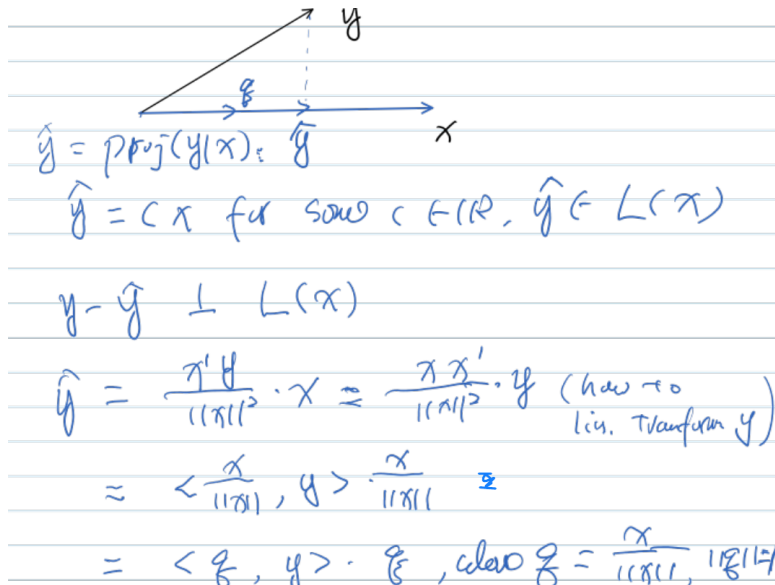 y
q
x
ŷ = proj(y|x): ŷ
ŷ = c x for some c ∈ ℝ, ŷ ∈ L(x)
y - ŷ ⊥ L(x)
ŷ = x'y / ||x||² · x = x x' / ||x||² · y (how to
lin. transform y)
= < x / ||x|| , y > · x / ||x||
= < q , y > · q , where q = x / ||x|| , ||q||=1